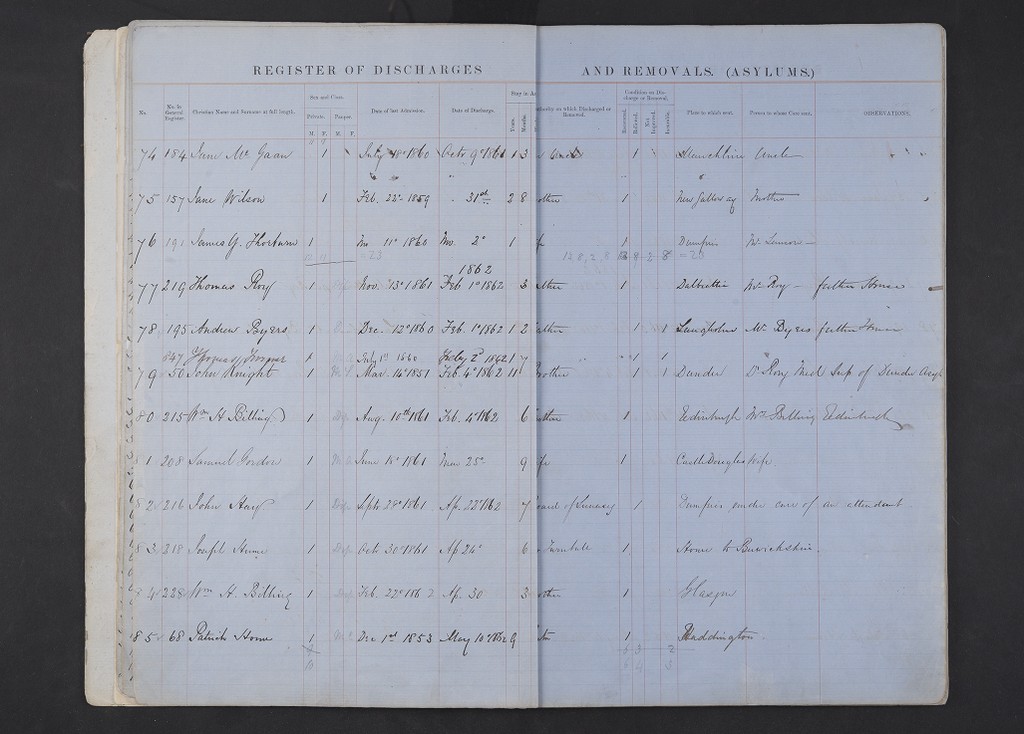 REGISTER OF DISCHARGES AND REMOVALS. (ASYLUMS.)
No. No. in General Register. Christian Name and Surname at full length. Sex and Class. Private. Pauper. M. F. M. F. Date of last Admission. Date of Discharge. Years. Months. Authority on which Discharged or Removed. Condition on Discharge or Removal. Recovered. Relieved. Not Improved. Incurable. Place to which sent. Person to whose Care sent. OBSERVATIONS.
74 184 Jane Mc Gaan 1 July 18 1860 Octr 9 1861 1 3 Uncle 1 Mauchline Uncle
75 157 Jane Wilson 1 Feb. 22 1859 " 31st 2 8 other 1 New Galloway Mother
76 191 James G. Thorburn 1 11 1860 2 1 fe 1 Dumfries
= 23 12 8, 2, 8 8 2 8 = 23
1862
77 219 Thomas Roy 1 Nov. 13 1861 Feb 1 1862 3 ather 1 Dalbeattie Mr Roy father House
78 195 Andrew Byers 1 Dec. 12 1860 Feb. 1 1862 1 2 ather 1 1 Langholm Mr Byers father House
July 1st 1860 1 7 " 1 1
79 56 John Knight 1 Mar. 14 1851 Feb 4 1862 11 rother 1 1 Dundee Dr Rory Med Sup of Dundee Asyl
80 215 Wm H Billing 1 Aug. 10th 1861 Feb. 4 1862 6 other 1 Edinburgh Mr Billing Edinburgh
81 208 Samuel Gordon 1 June 18 1861 Mar 25 9 fe 1 Castle Douglas Wife
82 216 John Hay 1 Sept. 28 1861 Ap. 22 1862 7 oard of Lunacy 1 Dumfries under care of an attendant
83 218 Joseph Hume 1 Octr 30 1861 Ap 24 6 Turnbull 1 Home to Berwickshire.
84 228 Wm H. Billing 1 Feb. 27 1862 Ap. 30 3 other 1 Glasgow
85 68 Patrick Home 1 Dec 1st 1853 May 10 1862 9 1 Haddington.
6 3 2